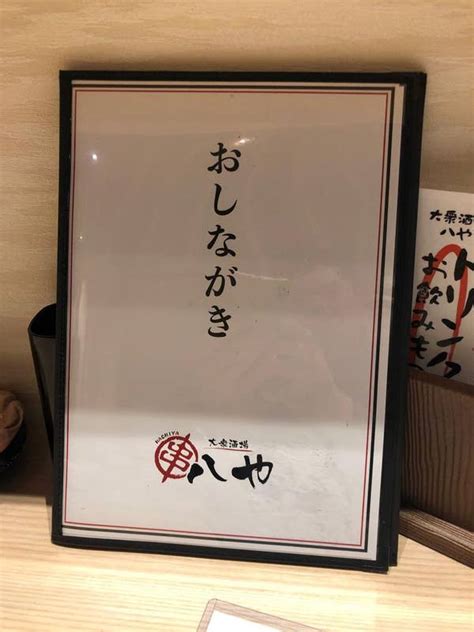 おしながき
HACHIYA
串
大衆酒場
八や
大衆酒
八や
ドリンク
お飲みも